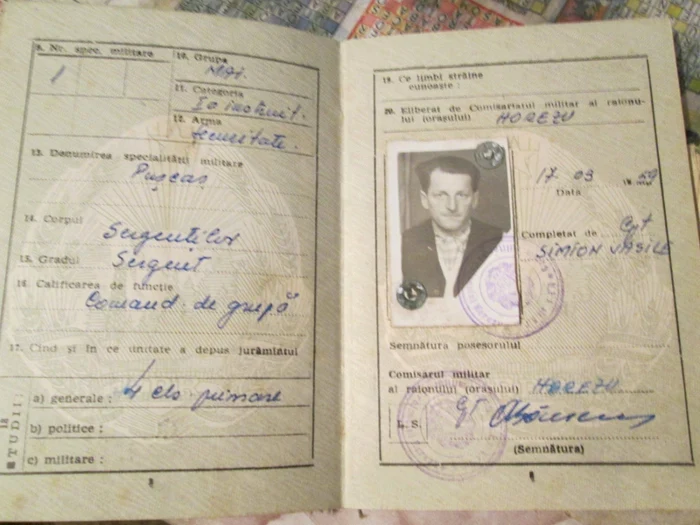 9. Nr. spec. militare
1
10. Grupa
MAI.
11. Categoria
I-a instruit.
12. Arma
securitate.
13. Denumirea specialității militare
Pușcaș
14. Corpul
Sergenților
15. Gradul
Sergent
16. Calificarea de funcție
Comand. de grupă
17. Cînd și în ce unitate a depus jurămîntul
18
STUDII:
a) generale : 4 cls. primare
b) politice :
c) militare :
19. Ce limbi străine
cunoaște :
20. Eliberat de Comisariatul militar al raionu-
lui (orașului) HOREZU
17. 03 59
Data
Completat de Cpt
SIMION VASILE
Semnătura posesorului
Comisarul militar
al raionului (orașului) HOREZU
L. S.
(Semnătura)